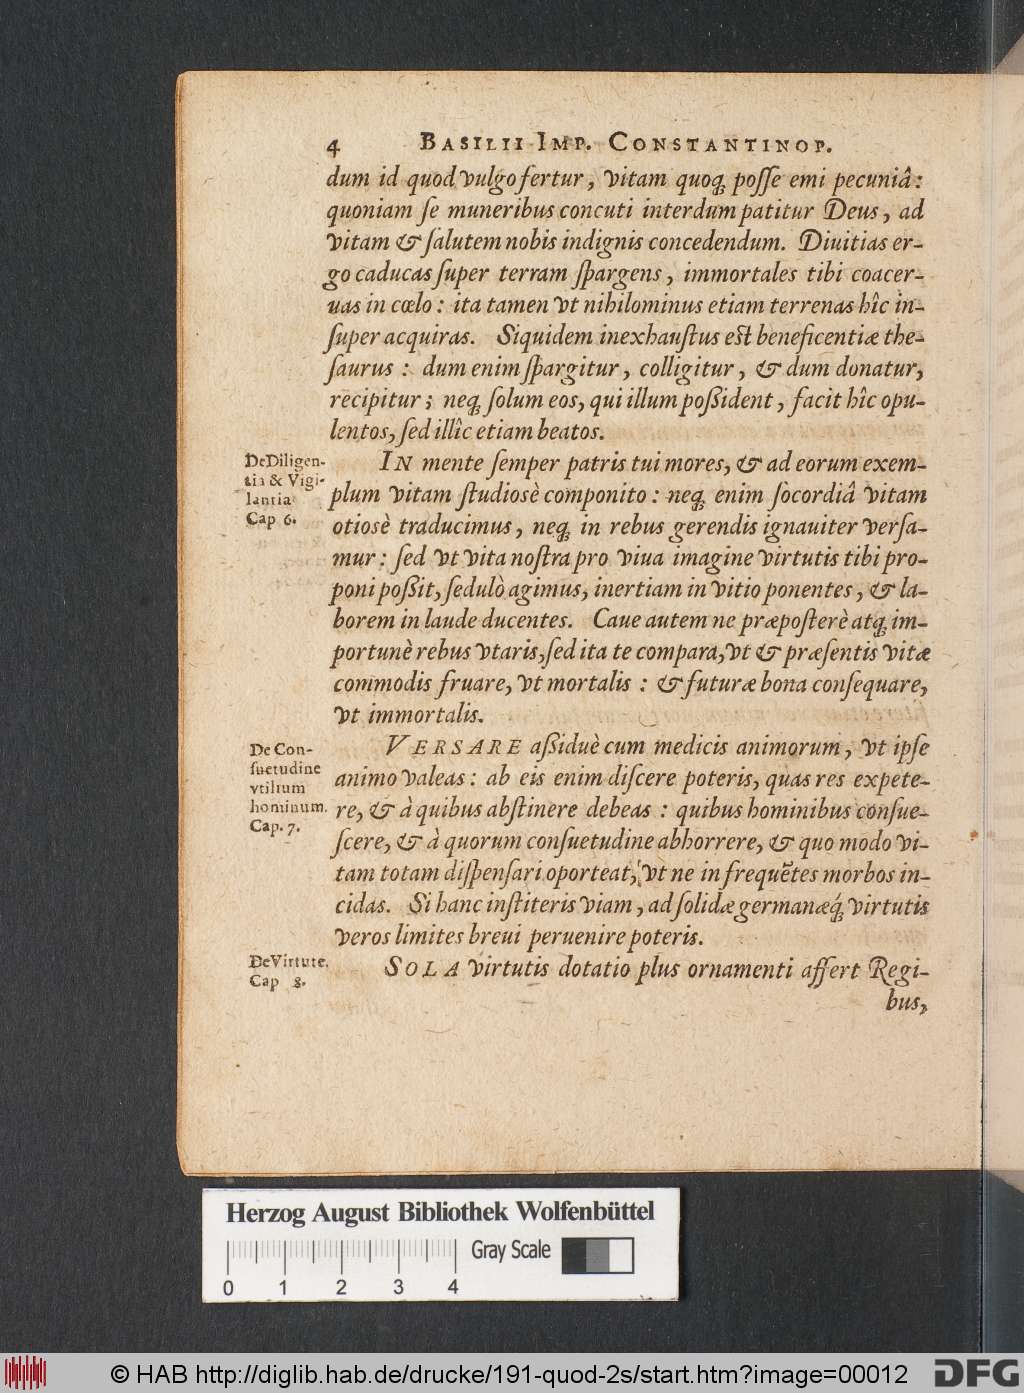 4 BASILII IMP. CONSTANTINOP.
dum id quod vulgo fertur, vitam quoq; posse emi pecuniâ:
quoniam se muneribus concuti interdum patitur Deus, ad
vitam & salutem nobis indignis concedendum. Diuitias er-
go caducas super terram spargens, immortales tibi coacer-
uas in cœlo: ita tamen vt nihilominus etiam terrenas hîc in-
super acquiras. Siquidem inexhaustus est beneficentiæ the-
saurus: dum enim spargitur, colligitur, & dum donatur,
recipitur; neq; solum eos, qui illum possident, facit hîc opu-
lentos, sed illîc etiam beatos.
De Diligen-
tia & Vigi-
lantia
Cap 6.
IN mente semper patris tui mores, & ad eorum exem-
plum vitam studiosè componito: neq; enim socordiâ vitam
otiosè traducimus, neq; in rebus gerendis ignauiter versa-
mur: sed vt vita nostra pro viua imagine virtutis tibi pro-
poni possit, sedulò agimus, inertiam in vitio ponentes, & la-
borem in laude ducentes. Caue autem ne præposterè atq; im-
portunè rebus vtaris, sed ita te compara, vt & præsentis vitæ
commodis fruare, vt mortalis: & futuræ bona consequare,
vt immortalis.
De Con-
suetudine
vtilium
hominum.
Cap. 7.
VERSARE assiduè cum medicis animorum, vt ipse
animo valeas: ab eis enim discere poteris, quas res expete-
re, & à quibus abstinere debeas: quibus hominibus consue-
scere, & à quorum consuetudine abhorrere, & quo modo vi-
tam totam dispensari oporteat, vt ne in frequẽtes morbos in-
cidas. Si hanc institeris viam, ad solidæ germanæq́; virtutis
veros limites breui peruenire poteris.
De Virtute.
Cap 8.
SOLA virtutis dotatio plus ornamenti affert Regi-
bus,
Herzog August Bibliothek Wolfenbüttel
Gray Scale
0 1 2 3 4
© HAB http://diglib.hab.de/drucke/191-quod-2s/start.htm?image=00012
DFG